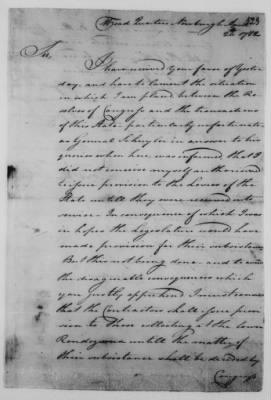 Head Quarters Newburgh
2d 1782
Sir,
I have received your favor of Yester
day, and have to lament the situation
in which I am placed between the Re
solves of Congress and the transactions
of this State particularly unfortunate,
as General Schuyler in answer to his
queries when here was informed that I
did not conceive myself authorised
to issue provision to the Levies of the
State untill they were received into
service. In consequence of which I was
in hopes the Legislature would have
made provision for their subsistence.
But this not being done and to avoid
the disagreeable consequences which
you justly apprehend I must consent
that the Contractors shall issue provi
sion to those collecting at the several
Rendezvous untill the matter of
their subsistance shall be decided by
Congress